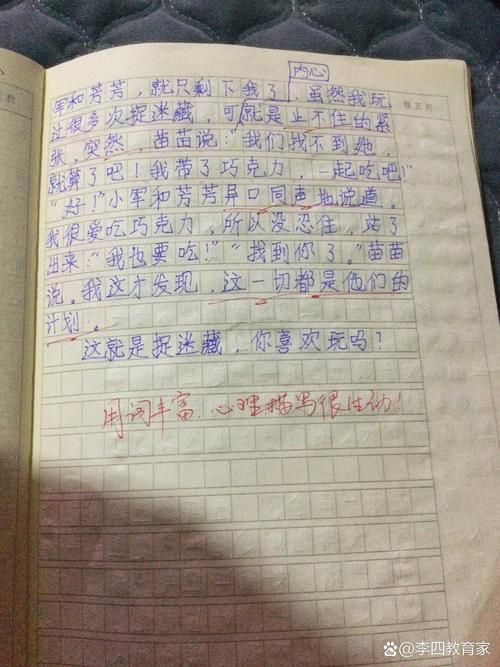 内心
军和芳芳，就只剩下我了，虽然我玩
过很多次捉迷藏，可就是止不住的紧
张，突然，苗苗说："我们找不到她，
就算了吧！我带了巧克力，一起吃吧！"
"好！"小军和芳芳异口同声地说道。
我很爱吃巧克力，所以没忍住，站了
出来："我也要吃！""找到你了。"苗苗
说。我这才发现，这一切都是他们的
计划。
这就是捉迷藏，你喜欢玩吗？
用词丰富，心理描写很生动！
修正栏
@李四教育家